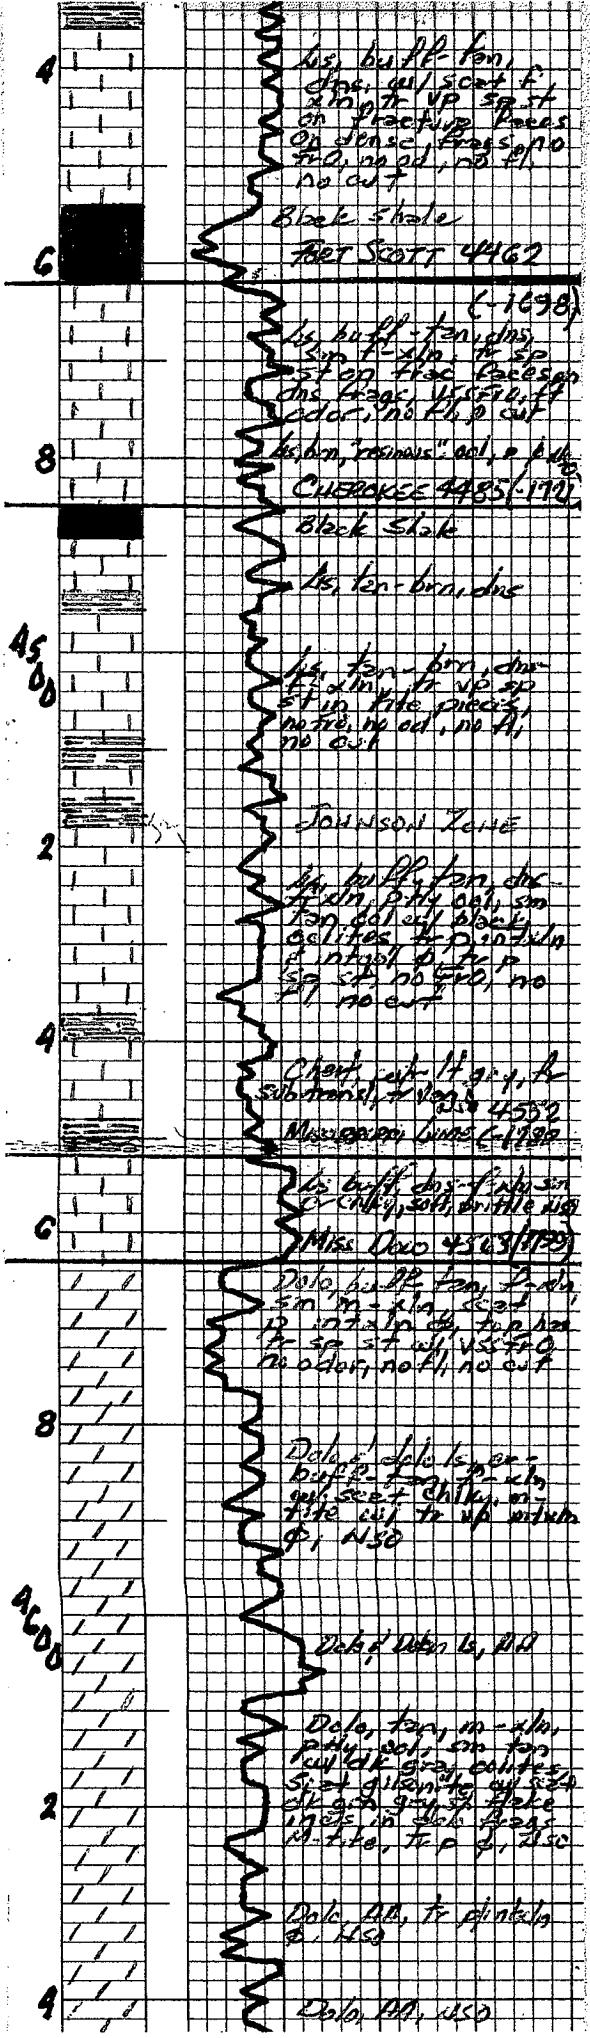 4
Ls, buff-tan,
dns, w/ scat f
xln, tr vp sp st
on fracture faces
on dense frags, no
fro, no od, no fl,
no cut
Black Shale
FORT SCOTT 4462
6
(-1698)
Ls, buff-tan, dns,
sm f-xln, tr sp
st on frac faces on
dns frags, VSSFrO, ft
odor, no fl, p cut
8
Ls, brn, "resinous" ool, p
CHEROKEE 4485 (-1721
Black Shale
Ls, tan-brn, dns
4500
Ls, tan-brn, dns-
f xln, tr vp sp
st in tite pieces,
no fro, no od, no fl,
no cut
JOHNSON ZONE
2
Ls, buff, tan, dns-
f xln, ptly ool, sm
tan ool w/ black
oolites, tr p intxln
ϕ, tr p
sp st, no FrO, no
fl, no cut
4
Chert, lt gry,
subtransl, tr
4552
Mississippi Lime (-1788
Ls buff dns-f-xln sm
chlky, soft, brittle NSO
6
Miss Dolo 4563 (-1799)
Dolo, buff-tan, f-xln,
sm m-xln, scat
p intxln ϕ,
tr sp st w/ VSSFrO,
no odor, no fl, no cut
8
Dolo & dolo ls,
buff-tan, f-xln
w/ scat chlky, m-
tite w/ tr vp intxln
ϕ, NSO
4600
Dolo & Dolo ls, AA
Dolo, tan, m-xln,
ptly ool, sm tan
w/ dk gray oolites,
scat gilsonite w/ scat
dk grn gry sh flake
incls in dolo frags
M-tite, Tr p ϕ, NSO
2
Dolo, AA, tr p intxln
ϕ, NSO
4
Dolo, AA, NSO